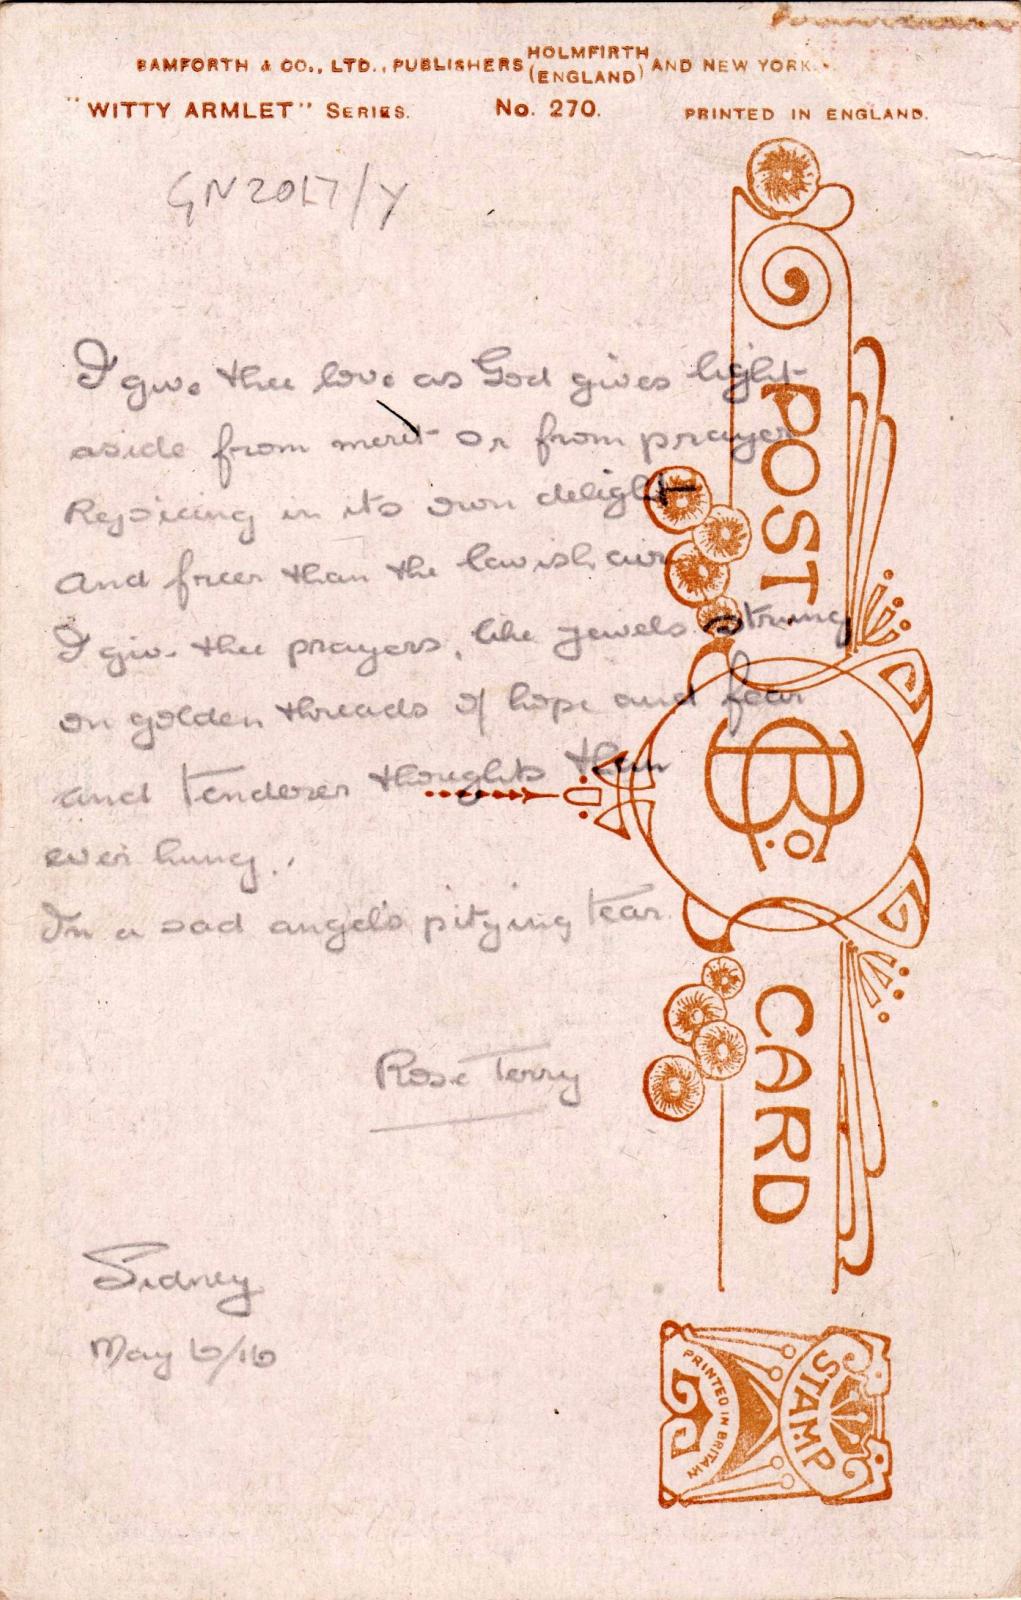 BAMFORTH & CO., LTD., PUBLISHERS HOLMFIRTH (ENGLAND) AND NEW YORK.
"WITTY ARMLET" SERIES. No. 270. PRINTED IN ENGLAND.
GN2017/Y
I give thee love as God gives light
aside from merit or from prayer
Rejoicing in its own delight
And freer than the lavish air
I give thee prayers, like jewels strung
on golden threads of hope and fear
and tenderer thoughts than
ever hung.
In a sad angel's pitying tear.
Rose Terry
Sidney
May 6/16
POST CARD
B Co
STAMP
PRINTED IN BRITAIN